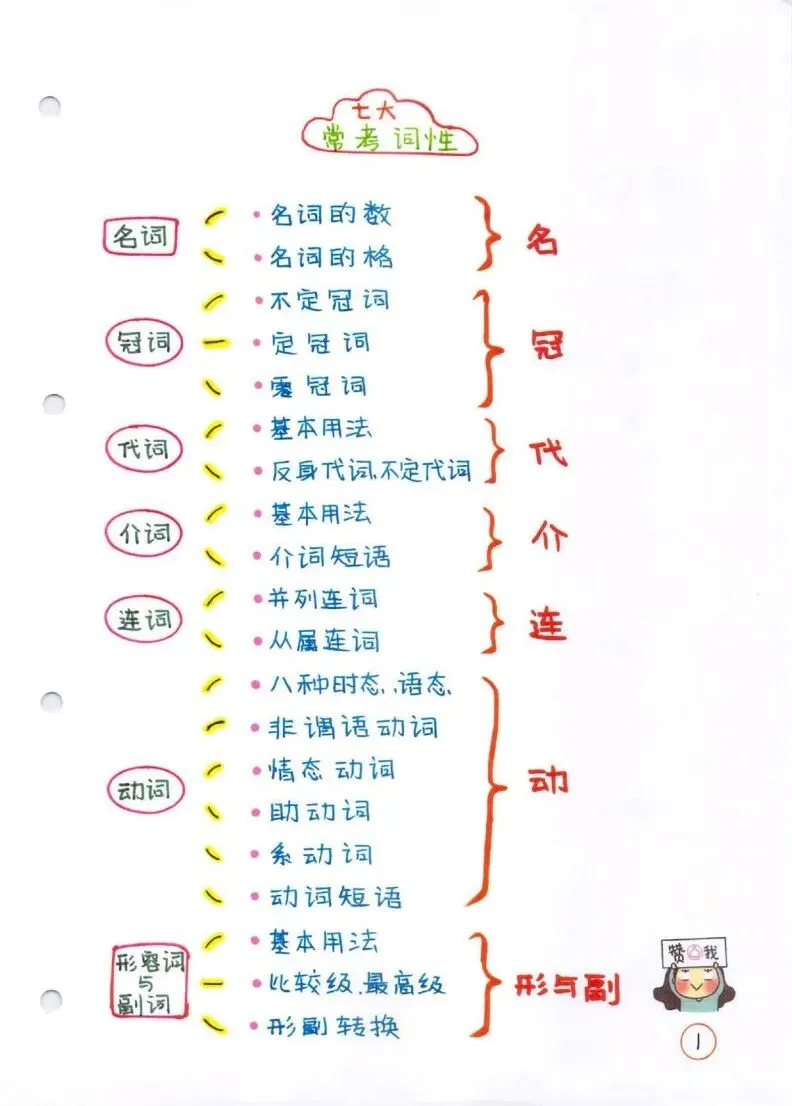 七大
常考词性
名词
名词的数
名词的格
名
冠词
不定冠词
定冠词
零冠词
冠
代词
基本用法
反身代词、不定代词
代
介词
基本用法
介词短语
介
连词
并列连词
从属连词
连
动词
八种时态、语态、
非谓语动词
情态动词
助动词
系动词
动词短语
动
形容词
与
副词
基本用法
比较级、最高级
形副转换
形与副
赞 我
1